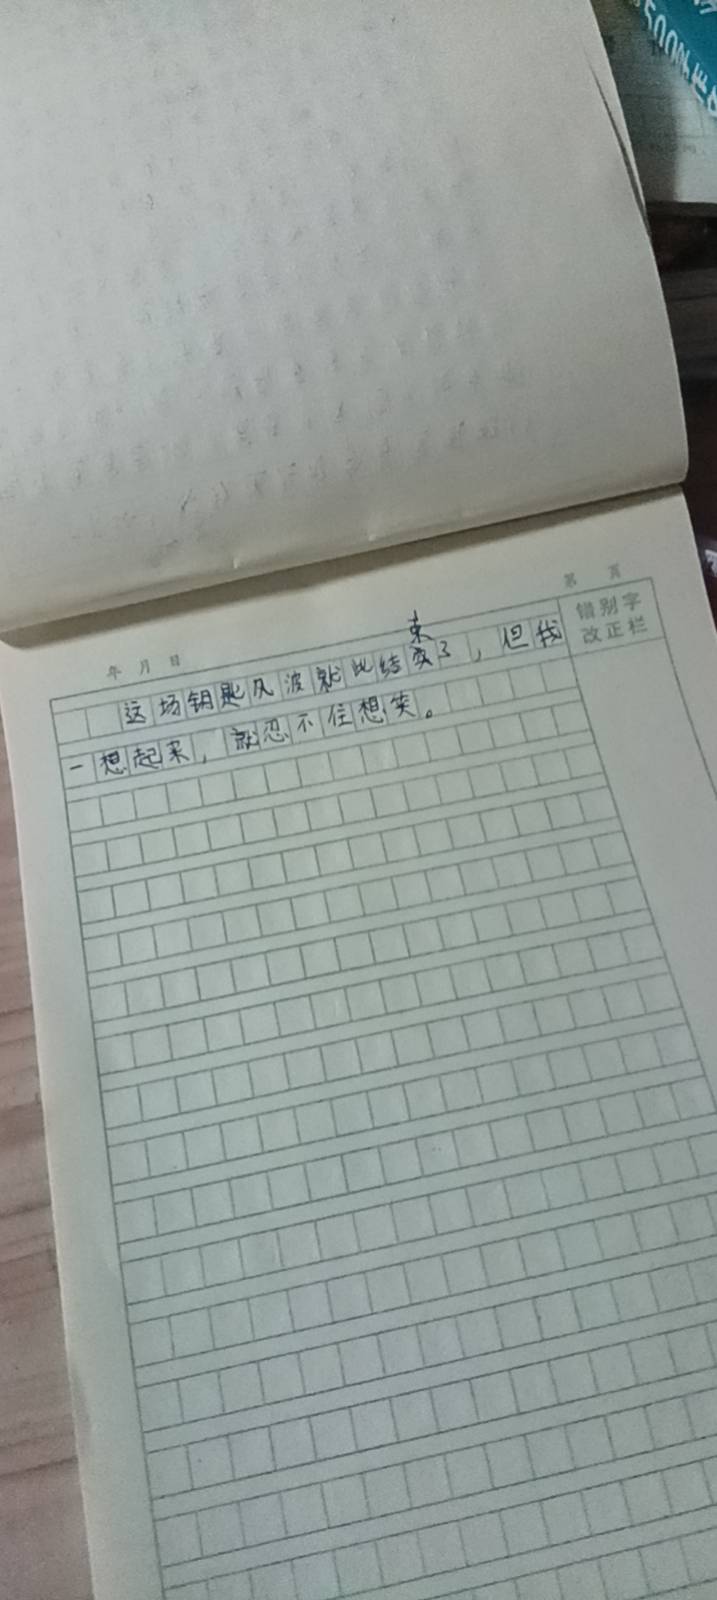 500
第 页
年 月 日
错别字
改正栏
束
这场钥匙风波就此结了，但我
一想起来，就忍不住想笑。